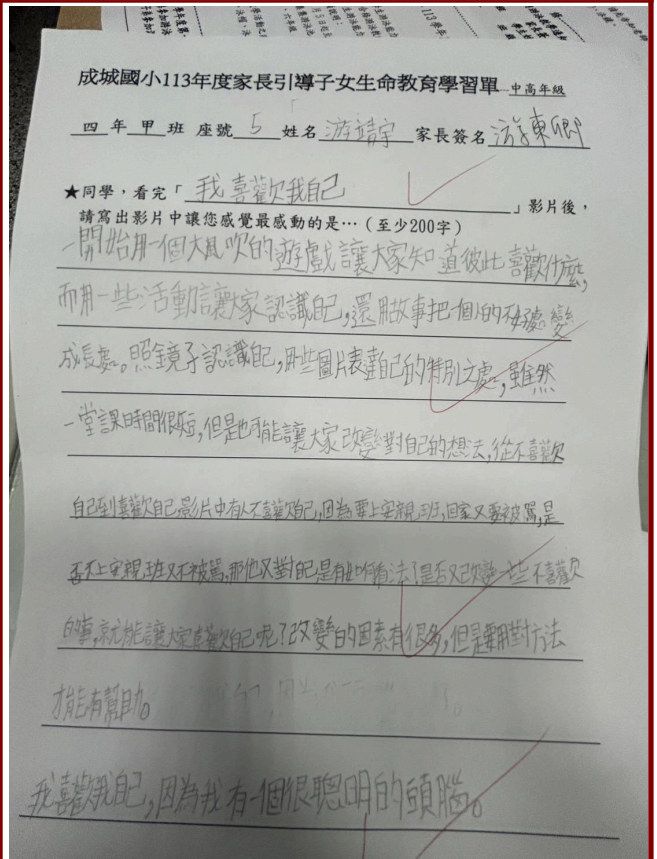 成城國小113年度家長引導子女生命教育學習單 中高年級
四 年 甲 班 座號 5 姓名 游靖宇 家長簽名 游東卿
★同學,看完「 我喜歡我自己 」影片後,
請寫出影片中讓您感覺最感動的是…(至少200字)
一開始用一個大風吹的遊戲讓大家知道彼此喜歡什麼,
而用一些活動讓大家認識自己,還用故事把一個人的不好處變
成長處。照鏡子認識自己,用些圖片表達自己的特別之處,雖然
一堂課時間很短,但是也可能讓大家改變對自己的想法,從不喜歡
自己到喜歡自己。影片中有人不喜歡自己,因為要上安親班,回家又要被罵,是
否不上安親班又不被罵,那他又對自己是有如何看法?是否又改變一些不喜歡
的事,就能讓大家喜歡自己呢?改變的因素有很多,但是要用對方法
才能有幫助。
我喜歡我自己,因為我有一個很聰明的頭腦。